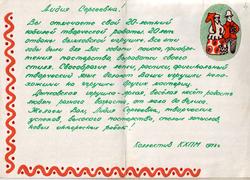 Лидия Сергеевна!
Вы отмечаете свой 20-летний
юбилей творческой работы. 20 лет
отдано дымковской игрушке. Все эти
годы были для Вас годами поиска, приобре-
тения мастерства, выработки своего
стиля. Своеобразие лепки, росписи, оригинальный
творческий язык делают Ваши игрушки непо-
хожими на игрушки других мастериц.
Дымковская игрушка - яркая, весёлая несёт радость
людям разного возраста, от мала до велика.
Желаем Вам, Лидия Сергеевна, творческих
успехов, высокого мастерства, смелых замыслов,
новых интересных работ!
Коллектив КХПМ